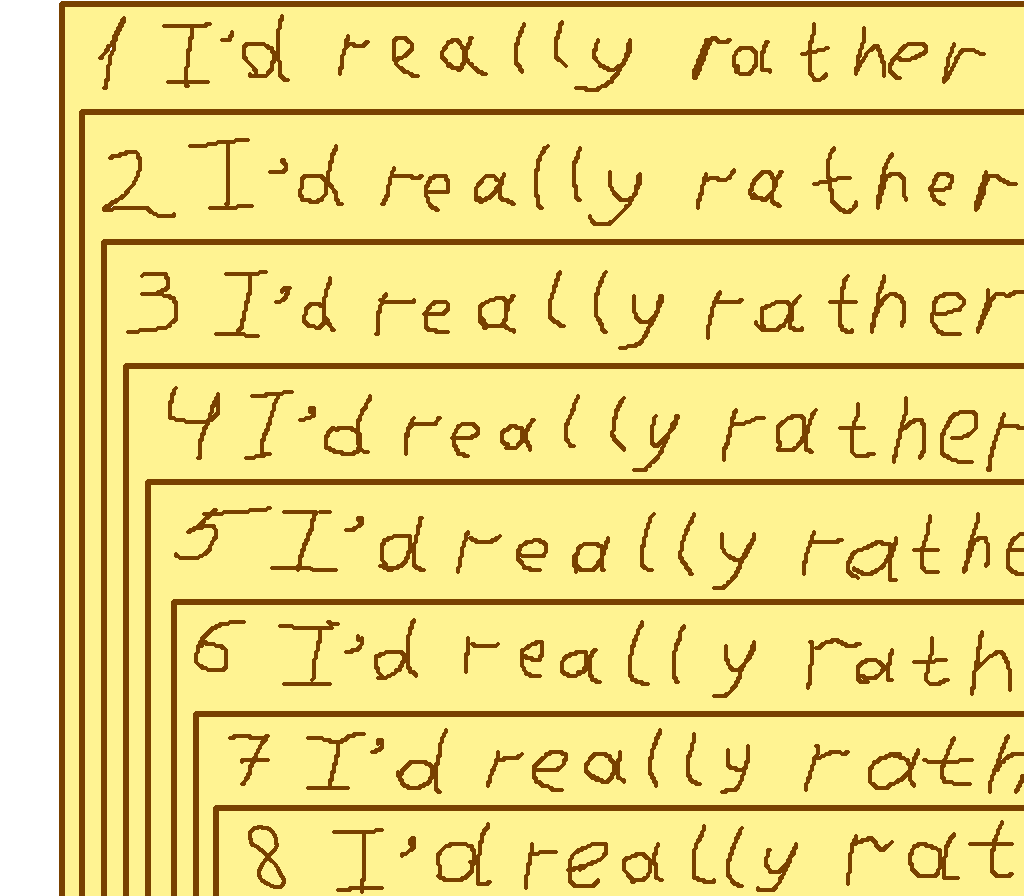 1 I'd really rather
2 I'd really rather
3 I'd really rather
4 I'd really rather
5 I'd really rathe
6 I'd really rath
7 I'd really rath
8 I'd really rat